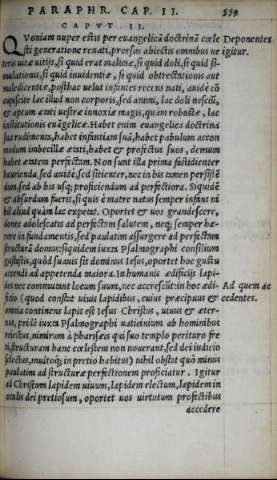 PARAPHR. CAP. II. 559
CAPVT II.
QVoniam nuper estis per euangelicã doctrinã cœle Deponentes
sti generatione renati, prorsus abiectis omnibus ue igitur.
teris uitæ uitijs, si quid erat malitiæ, si quid doli, si quid si-
mulationis, si quid inuidentiæ, si quid obtrectationis aut
maledicentiæ, posthac uelut infantes recens nati, auidè cõ
cupiscite lac illud non corporis, sed animi, lac doli nesciũ,
& aptum ætati uestræ innoxiæ magis, quàm robustæ, lac
institutionis euãgelicæ. Habet enim euangelica doctrina
sua rudimenta, habet infantiam suã, habet pabulum accom
modum imbecillæ ætati, habet & profectus suos, demum
habet ætatem perfectam. Non sunt illa prima fastidienter
haurienda, sed auidè, sed sitienter, nec in his tamen persistē
dum, sed ab his usq; proficiendum ad perfectiora. Siquidē
& absurdum fuerit, si quis è matre natus semper infans ni
hil aliud quàm lac expetat. Oportet & uos grandescere,
donec adolescatis ad perfectam salutem, neq; semper hæ-
rere in fundamentis, sed paulatim assurgere ad perfectum
structuræ domus: siquidem iuxta Psalmographi consilium
gustastis, quòd suauis sit dominus Iesus, oportet hoc gustu
accendi ad appetenda maiora. In humanis ædificijs lapi-
des nec commutant locum suum, nec accrescũt: in hoc ædi- Ad quem ac
ficio (quod constat uiuis lapidibus, cuius præcipuus & cedentes.
omnia continens lapis est Iesus Christus, uiuus & æter-
nus, pridē iuxta Psalmographi uaticinium ab hominibus
reiectus, nimirum à pharisæis qui suo templo perituro fre
ti, structuram hanc cœlestem non nouerant, sed dei iudicio
selectus, multoq; in pretio habitus) nihil obstat quò minus
paulatim ad structuræ perfectionem proficiatur. Igitur
ad Christum lapidem uiuum, lapidem electum, lapidem in
oculis dei pretiosum, oportet uos uirtutum profectibus
accedere